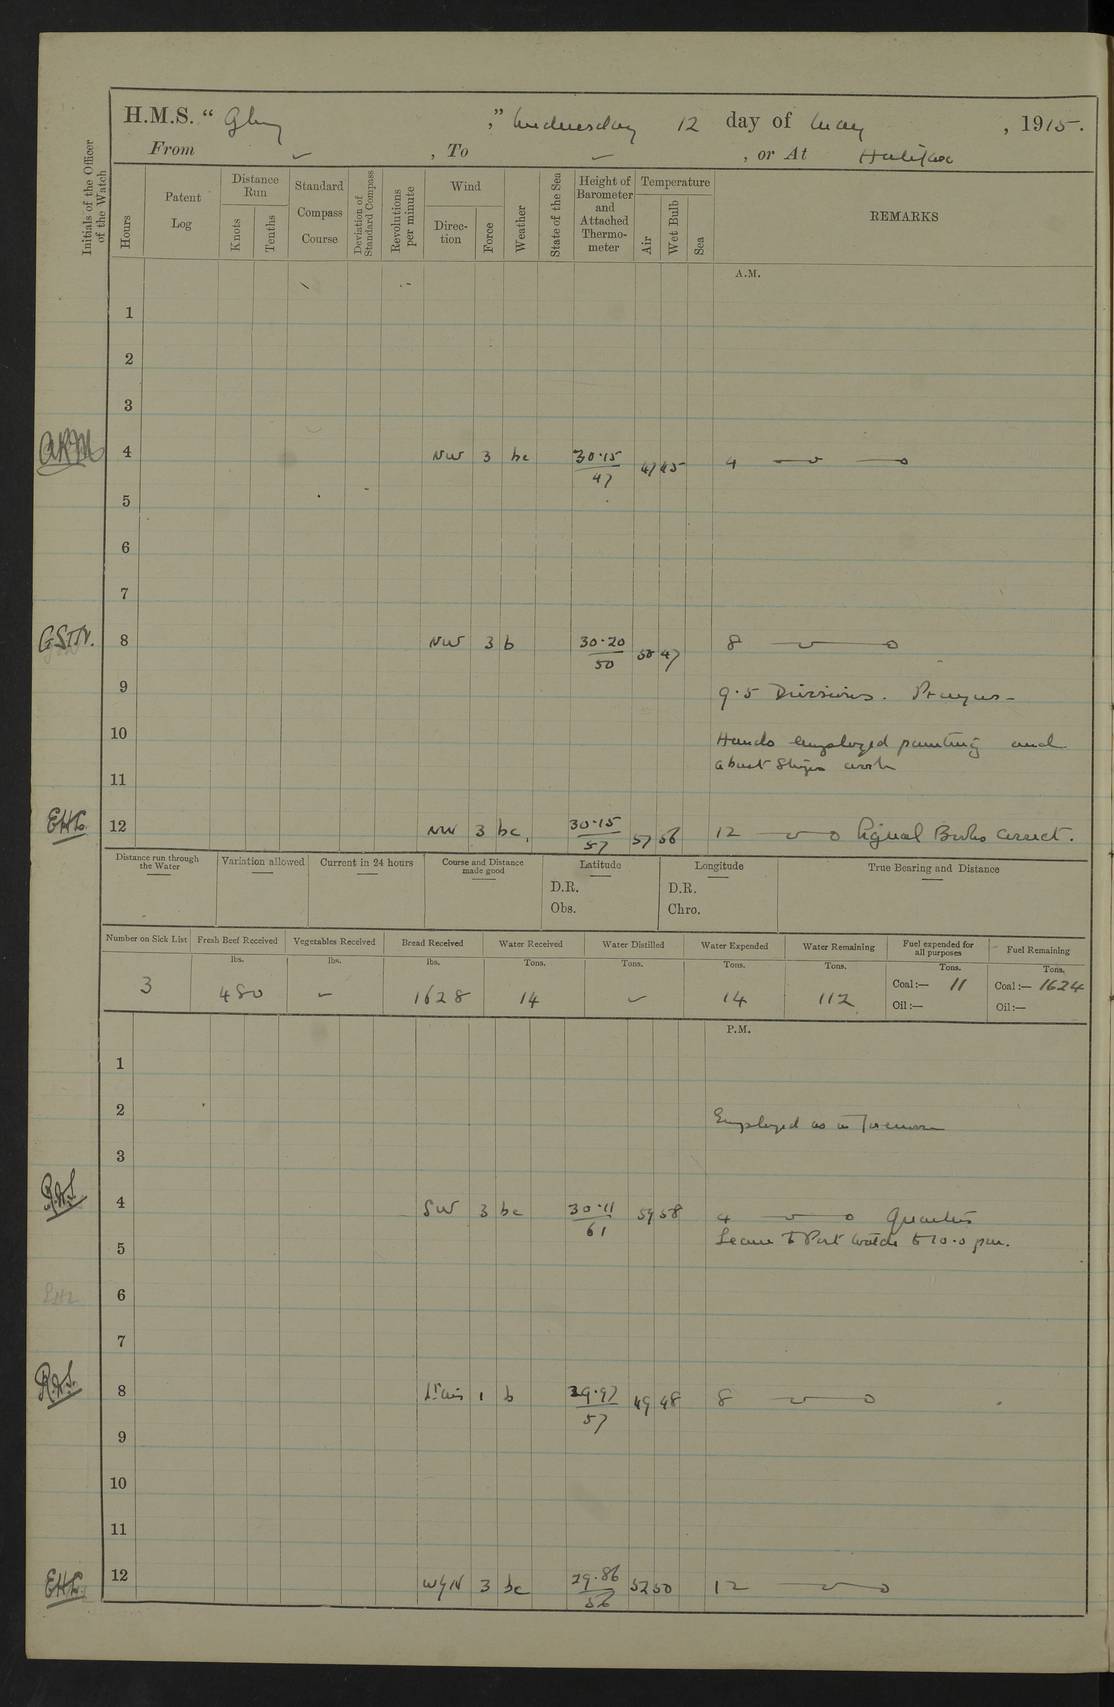 H.M.S. " Glory ," Wednesday 12 day of May , 1915.
From ✓ , To ✓ , or At Halifax
Initials of the Officer of the Watch
Hours
Patent Log
Distance Run
Knots
Tenths
Standard Compass Course
Deviation of Standard Compass
Revolutions per minute
Wind
Direc-tion
Force
Weather
State of the Sea
Height of Barometer and Attached Thermo-meter
Temperature
Air
Wet Bulb
Sea
REMARKS
A.M.
1
2
3
4 NW 3 bc 30.15 / 47 47 45 4
5
6
7
GSTN. 8 NW 3 b 30.20 / 50 50 47 8
9 9.5 Divisions. Prayers –
10 Hands employed painting and
about Ships work
11
12 NW 3 bc, 30.15 / 57 57 56 12 Signal Books correct.
Distance run through the Water
Variation allowed
Current in 24 hours
Course and Distance made good
Latitude
D.R.
Obs.
Longitude
D.R.
Chro.
True Bearing and Distance
Number on Sick List
Fresh Beef Received
Vegetables Received
Bread Received
Water Received
Water Distilled
Water Expended
Water Remaining
Fuel expended for all purposes
Fuel Remaining
lbs. lbs. lbs. Tons. Tons. Tons. Tons. Tons. Tons.
3 480 – 1628 14 ✓ 14 112 Coal :— 11 Coal :— 1624
Oil :— Oil :—
P.M.
1
2 Employed as in Forenoon
3
4 SW 3 bc 30.11 / 61 59 58 4 Quarters
Leave to Port Watch to 10.0 pm.
5
6
7
8 Lt airs 1 b 29.97 / 57 49 48 8
9
10
11
12 WyN 3 bc 29.86 / 56 52 50 12